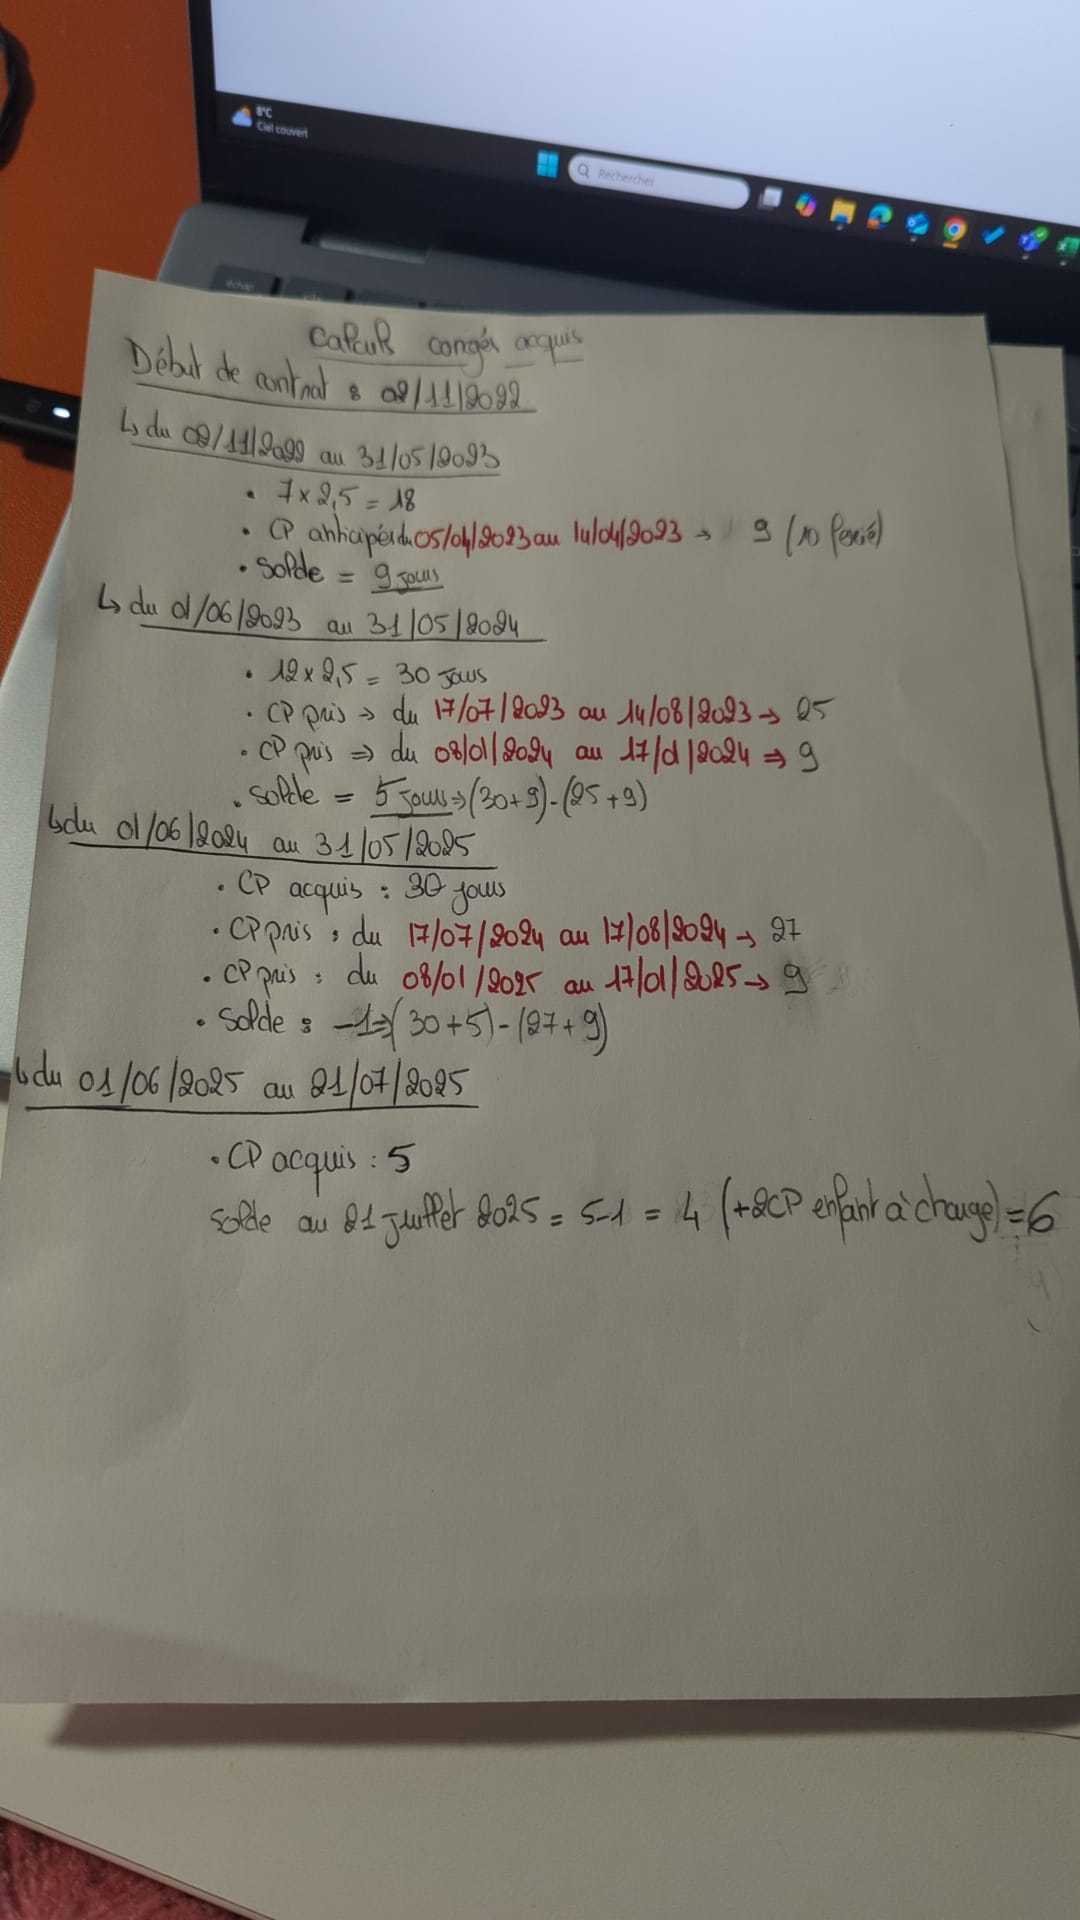 8°C
Ciel couvert
Rechercher
échap
Calculs congés acquis
Début de contrat : 02/11/2022
↳ du 02/11/2022 au 31/05/2023
• 7 x 2,5 = 18
• CP anticipés du 05/04/2023 au 14/04/2023 → 9 (10 Ferié)
• Solde = 9 jours
↳ du 01/06/2023 au 31/05/2024
• 12 x 2,5 = 30 jours
• CP pris → du 17/07/2023 au 14/08/2023 → 25
• CP pris ⇒ du 08/01/2024 au 17/01/2024 ⇒ 9
• Solde = 5 jours ⇒ (30+9)-(25+9)
↳ du 01/06/2024 au 31/05/2025
• CP acquis : 30 jours
• CP pris : du 17/07/2024 au 17/08/2024 → 27
• CP pris : du 08/01/2025 au 17/01/2025 → 9
• Solde : -1 ⇒ (30+5)-(27+9)
↳ du 01/06/2025 au 21/07/2025
• CP acquis : 5
Solde au 21 juillet 2025 = 5-1 = 4 (+2CP enfant à charge) = 6